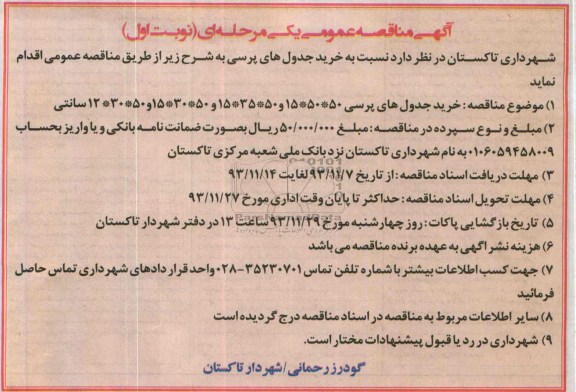 آگهی مناقصه عمومی یکی مرحله‌ای (نوبت اول)
شهرداری تاکستان در نظر دارد نسبت به خرید جدول های پرسی به شرح زیر از طریق مناقصه عمومی اقدام
نماید
۱) موضوع مناقصه: خرید جدول های پرسی ۵۰*۵۰*۱۵ و ۵۰*۳۵*۱۵ و ۵۰*۳۰*۱۵ و ۵۰*۳۰*۱۲ سانتی
۲) مبلغ و نوع سپرده در مناقصه: مبلغ ۵۰/۰۰۰/۰۰۰ ریال بصورت ضمانت نامه بانکی و یا واریز بحساب
۰۱۰۶۰۵۹۴۵۸۰۰۹ به نام شهرداری تاکستان نزد بانک ملی شعبه مرکزی تاکستان
۳) مهلت دریافت اسناد مناقصه: از تاریخ ۹۳/۱۱/۷ لغایت ۹۳/۱۱/۱۴
۴) مهلت تحویل اسناد مناقصه: حداکثر تا پایان وقت اداری مورخ ۹۳/۱۱/۲۷
۵) تاریخ بازگشایی پاکات: روز چهارشنبه مورخ ۹۳/۱۱/۲۹ ساعت ۱۳ در دفتر شهردار تاکستان
۶) هزینه نشر اگهی به عهده برنده مناقصه می باشد
۷) جهت کسب اطلاعات بیشتر با شماره تلفن تماس ۳۵۲۳۰۷۰۱-۰۲۸ واحد قرار دادهای شهرداری تماس حاصل
فرمائید
۸) سایر اطلاعات مربوط به مناقصه در اسناد مناقصه درج گردیده است
۹) شهرداری در رد یا قبول پیشنهادات مختار است.
گودرز رحمانی/شهردار تاکستان